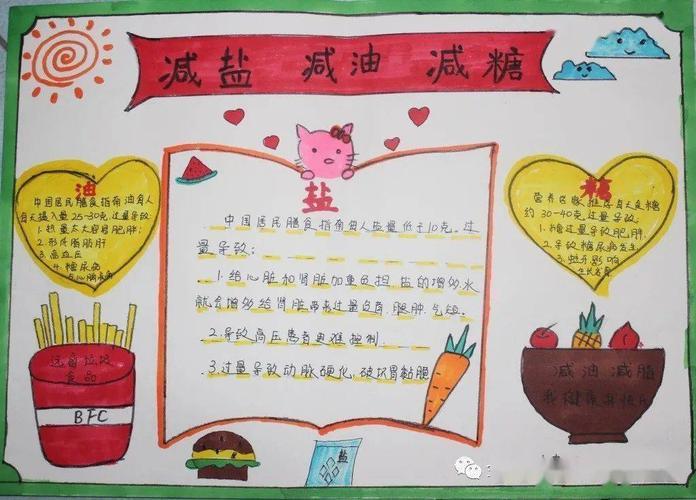 减盐 减油 减糖
油
中国居民膳食指南油每人
每天摄入量25-30克,过量导致:
1.热量太大容易肥胖;
2.形成脂肪肝
3.高血压
4.糖尿病
盐
中国居民膳食指南每人盐量低于10克。过
量导致:
1.给心脏和肾脏加重负担,盐的增多,水
就会增多给肾脏带来过量负荷,腿肿、气短。
2.导致高压患者更难控制
3.过量导致动脉硬化,破坏胃粘膜
糖
约30-40克,过量导致:
1.糖过量导致肥胖
2.导致糖尿病发生
3.蛀牙影响
远离垃圾
食品
BFC
盐
减油 减脂